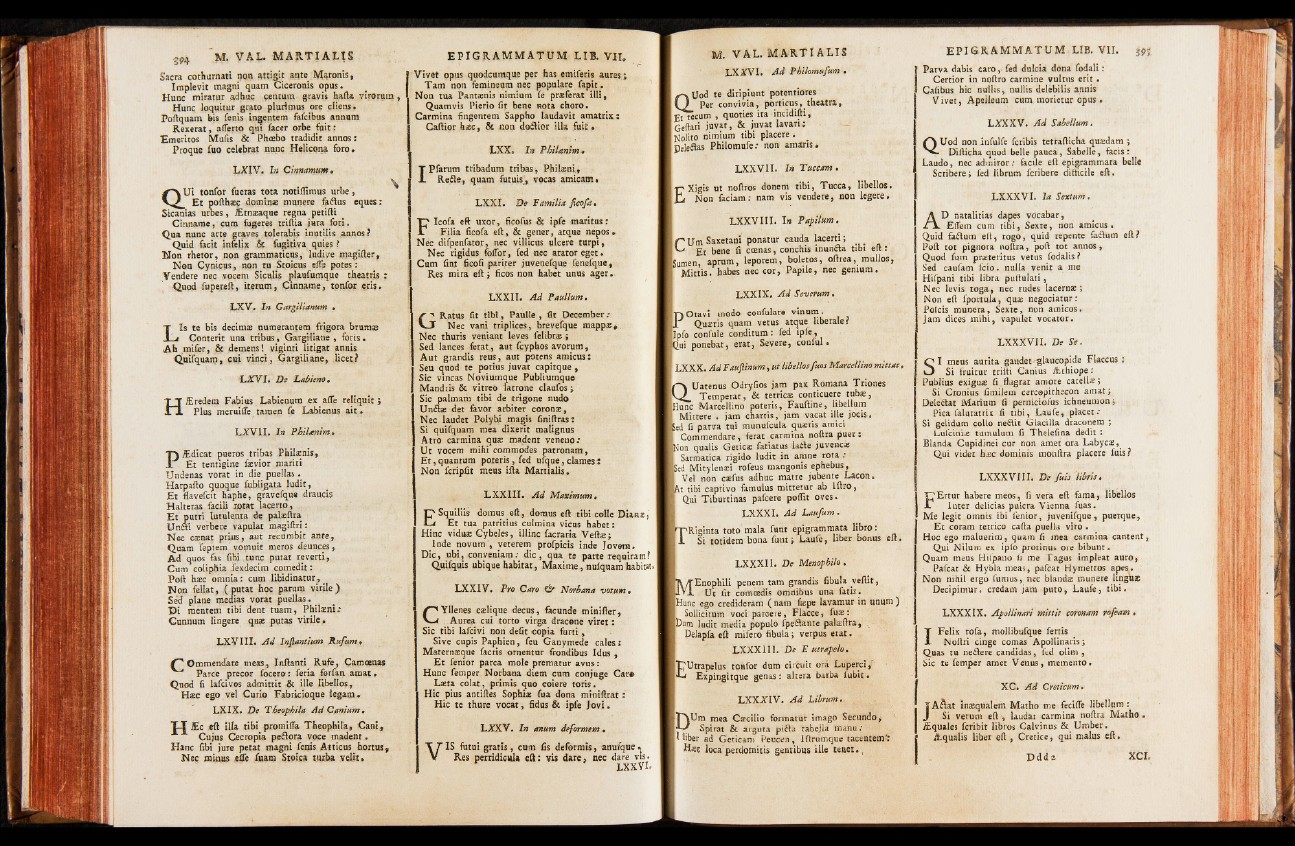 394 M. VAL. MARTIALIS
Sacra cothurnati non attigit ante Maronis,
Implevit magni quam Ciceronis opus.
Hunc miratur adhuc centum gravis hasta virorum,
Hunc loquitur grato plurimus ore cliens.
Postquam bis senis ingentem fascibus annum
Rexerat, asserto qui sacer orbe fuit:
Emeritos Musis & Phœbo tradidit annos:
Proque suo celebrat nunc Helicona foro.
LXIV. In Cinnamum.
QUi tonsor fueras tota notissimus urbe,
Et posthæc dominæ munere factus eques:
Sicanias urbes, Ætnæaque regna petisti
Cinname, cum fugeres tristia jura fori.
Qua nunc arte graves tolerabis inutilis annos?
Quid facit infelix & fugitiva quies?
Non rhetor, non grammaticus, ludive magister,
Non Cynicus, non tu Stoicus esse potes:
Vendere nec vocem Siculis plausumque theatris:
Quod superest, iterum, Cinname, tonsor eris.
LXV. In Gargilianum.
LIs te bis decimæ numerantem frigora brumæ
Conterit una tribus, Gargiliane, foris.
Ah miser, & demens! viginti litigat annis
Quisquam, cui vinci, Gargiliane, licet?
LXVI. De Labieno.
HÆredem Fabius Labienum ex asse reliquit;
Plus meruisse tamen se Labienus ait.
LXVII. In Philænim.
PÆdicat pueros tribas Philænis,
Et tentigine sævior mariti
Undenas vorat in die puellas.
Harpasto quoque subligata ludit,
Et flavescit haphe, gravesque draucis
Halteras facili rotat lacerto,
Et putri lutulenta de palæstra
Uncti verbere vapulat magistri:
Nec cœnat prius, aut recumbit ante,
Quam septem vomuit meros deunces,
Ad quos fas sibi tunc putat reverti,
Cum coliphia sexdecim comedit:
Post hæc omnia: cum libidinatur,
Non fellat, (putat hoc parum virile)
Sed plane medias vorat puellas.
Di mentem tibi dent tuam, Philæni:
Cunnum lingere quæ putas virile.
LXVIII. Ad Instantium Rufum.
COmmendare meas, Instanti Rufe, Camœnas
Parce precor socero: seria forsan amat.
Quod si lascivos admittit & ille libellos,
Hæc ego vel Curio Fabricioque legam.
LXIX. De Theophila Ad Canium.
HÆc est illa tibi promissa Theophila, Cani,
Cujus Cecropia pectora voce madent.
Hanc sibi jure petat magni senis Atticus hortus,
Nec minus esse suam Stoica turba velit.
EPIGRAMMATUM LIB. VII.
Vivet opus quodcumque per has emiseris aures;
Tam non femineum nec populare sapit.
Non tua Pantænis nimium se præferat illi,
Quamvis Pierio sit bene nota choro.
Carmina fingentem Sappho laudavit amatrix:
Castior hæc, & non doctior illa fuit.
LXX. In Philænim.
IPsarum tribadum tribas, Philæni,
Recte, quam futuis, vocas amicam.
LXXI. De Familia ficosa.
FIcosa est uxor, ficosus & ipse maritus:
Filia ficosa est, & gener, atque nepos.
Nec dispensator, nec villicus ulcere turpi,
Nec rigidus fossor, sed nec arator eget.
Cum sint ficosi pariter juvenesque senesque,
Res mira est; ficos non habet unus ager.
LXXII. Ad Paullum.
GRatus sit tibi, Paulle, sit December:
Nec vani triplices, brevesque mappæ,
Nec thuris veniant leves selibræ;
Sed lances ferat, aut scyphos avorum,
Aut grandis reus, aut potens amicus:
Seu quod te potius juvat capitque,
Sic vincas Noviumque Publiumque
Mandris & vitreo latrone clausos;
Sic palmam tibi de trigone nudo
Unctæ det favor arbiter coronæ,
Nec laudet Polybi magis sinistras:
Si quisquam mea dixerit malignus
Atro carmina quæ madent veneno:
Ut vocem mihi commodes patronam,
Et, quantum poteris, sed usque, clames:
Non scripsit meus ista Martialis.
LXXIII. Ad Maximum.
ESquiliis domus est, domus est tibi colle Dianæ,
Et tua patritius culmina vicus habet:
Hinc viduæ Cybeles, illinc sacraria Vestæ;
Inde novum, veterem prospicis inde Jovem.
Dic, ubi, conveniam: dic, qua te parte requiram?
Quisquis ubique habitat, Maxime, nusquam habitat.
LXXIV. Pro Caro & Norbana votum.
CYllenes cælique decus, facunde minister,
Aurea cui torto virga dracone viret:
Sic tibi lascivi non desit copia furti,
Sive cupis Paphien, seu Ganymede cales:
Maternæque sacris ornentur frondibus Idus,
Et senior parca mole prematur avus:
Hunc semper Norbana diem cum conjuge Caro
Læta colat, primis quo coiere toris.
Hic pius antistes Sophiæ sua dona ministrat:
Hic te thure vocat, fidus & ipse Jovi.
LXXV. In anum deformem.
VIS futui gratis, cum sis deformis, anusque,
Res perridicula est: vis dare, nec dare vis.
LXXVI.
M. VAL. MARTIALIS
LXXVI. Ad Philomusum.
QUod te diripiunt potentiores
Per convivia, porticus, theatra,
Et tecum, quoties ita incidisti,
Gestari juvat, & juvat lavari:
Nolito nimium tibi placere.
Delectas Philomuse: non amaris.
LXXVII. In Tuccam.
EXigis ut nostros donem tibi, Tucca, libellos.
Non faciam: nam vis vendere, non legere.
LXXVIII. In Papilum.
CUm Saxetani ponatur cauda lacerti;
Et bene si cœnas, conchis inuncta tibi est:
Sumen, aprum, leporem, boletos, ostrea, mullos,
Mittis. habes nec cor, Papile, nec genium.
LXXIX. Ad Severum.
POtavi modo consulare vinum.
Quæris quam vetus atque liberale?
Ipso consule conditum: sed ipse,
Qui ponebat, erat, Severe, consul.
LXXX. Ad Faustinum, ut libellos suos Marcellino mittat.
QUatenus Odrysios jam pax Romana Triones
Temperat, & tetricæ conticuere tubæ,
Hunc Marcellino poteris, Faustine, libellum
Mittere. jam chartis, jam vacat ille jocis.
Sed si parva tui munuscula quæris amici
Commendare, ferat carmina nostra puer:
Non qualis Geticæ satiatus lacte juvencæ
Sarmatica rigido ludit in amne rota:
Sed Mitylenæi roseus mangonis ephebus,
Vel non cæsus adhuc matre jubente Lacon.
At tibi captivo famulus mittetur ab Istro,
Qui Tiburtinas pascere possit oves.
LXXXI. Ad Lausum.
TRiginta toto mala sunt epigrammata libro:
Si totidem bona sunt; Lause, liber bonus est.
LXXXII. De Menophilo.
MEnophili penem tam grandis fibula vestit,
Ut sit comœdis omnibus una satis.
Hunc ego credideram (nam sæpe lavamur in unum)
Sollicitum voci parcere, Flacce, suæ:
Dom ludit media populo spectante palæstra,
Delapsa est misero fibula; verpus erat.
LXXXIII. De Eutrapelo.
EUtrapelus tonsor dum circuit ora Luperci,
Expingitque genas: altera barba subit.
LXXXIV. Ad Librum.
DUm mea Cæcilio formatur imago Secundo,
Spirat & arguta picta tabella manu:
I liber ad Geticam Peucen, Istrumque tacentem:
Hæc loca perdomitis gentibus ille tenet.
EPIGRAMMATUM LIB. VII. 395
Parva dabis caro, sed dulcia dona sodali:
Certior in nostro carmine vultus erit.
Casibus hic nullis, nullis delebilis annis
Vivet, Apelleum cum morietur opus.
LXXXV. Ad Sabellum.
QUod non insulse scribis tetrasticha quædam;
Disticha quod belle pauca, Sabelle, facis:
Laudo, nec admiror: facile est epigrammata belle
Scribere; sed librum scribere difficile est.
LXXXVI. In Sextum.
AD natalitias dapes vocabar,
Essem cum tibi, Sexte, non amicus.
Quid factum est, rogo, quid repente factum est?
Post tot pignora nostra, post tot annos,
Quod sum præteritus vetus sodalis?
Sed causam scio. nulla venit a me
Hispani tibi libra pustulati,
Nec levis toga, nec rudes lacernæ;
Non est sportula, quæ negociatur:
Poscis munera, Sexte, non amicos.
Jam dices mihi, vapulet vocator.
LXXXVII. De Se.
SI meus aurita gaudet glaucopide Flaccus:
Si fruitur tristi Canius Æthiope:
Publius exiguæ si flagrat amore catellæ;
Si Cronius similem cercopithecon amat;
Delectat Marium si perniciosus ichneumon;
Pica salutatrix si tibi, Lause, placet:
Si gelidum collo nectit Glacilla draconem;
Lusciniæ tumulum si Thelesina dedit:
Blanda Cupidinei cur non amet ora Labycæ,
Qui videt hæc dominis monstra placere suis?
LXXXVIII. De suis libris.
FErtur habere meos, si vera est fama, libellos
Inter delicias pulcra Vienna suas.
Me legit omnis ibi senior, juvenisque, puerque,
Et coram tetrico casta puella viro.
Hoc ego maluerim, quam si mea carmina cantent,
Qui Nilum ex ipso protinus ore bibunt.
Quam meus Hispano si me Tagus impleat auro,
Pascat & Hybla meas, pascat Hymettos apes.
Non nihil ergo sumus, nec blandæ munere linguæ
Decipimur. credam jam puto, Lause, tibi.
LXXXIX. Apollinari mittit coronam roseam.
I Felix rosa, mollibusque sertis
Nostri cinge comas Apollinaris;
Quas tu nectere candidas, sed olim,
Sic te semper amet Venus, memento.
XC. Ad Creticum.
JActat inæqualem Matho me fecisse libellum:
Si verum est, laudat carmina nostra Matho.
Æquales scribit libros Calvinus & Umber.
Æqualis liber est, Cretice, qui malus est.
Ddd 2 XCI.